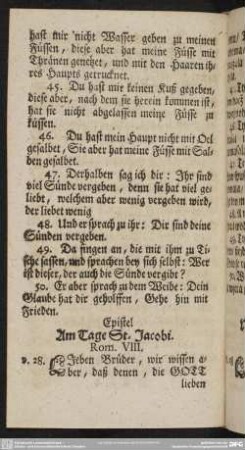 hast mir nicht Wasser geben zu meinen
Füssen, diese aber hat meine Füsse mit
Thränen genetzet, und mit den Haaren ih-
res Haupts getrucknet.
45. Du hast mir keinen Kuß gegeben,
diese aber, nach dem sie herein kommen ist,
hat sie nicht abgelassen meine Füsse zu
küssen.
46. Du hast mein Haupt nicht mit Oel
gesalbet, Sie aber hat meine Füsse mit Sal-
ben gesalbet.
47. Derhalben sag ich dir: Ihr sind
viel Sünde vergeben, denn sie hat viel ge-
liebet, welchem aber wenig vergeben wird,
der liebet wenig
48. Und er sprach zu ihr: Dir sind deine
Sünden vergeben.
49. Da fingen an, die mit ihm zu Ti-
sche sassen, und sprachen bey sich selbst: Wer
ist dieser, der auch die Sünde vergibt?
50. Er aber sprach zu dem Weibe: Dein
Glaube hat dir geholffen, Gehe hin mit
Frieden.
Epistel
Am Tage St. Jacobi.
Rom. VIII.
v. 28. Lieben Brüder, wir wissen a-
ber, daß denen, die GOTT
lieben